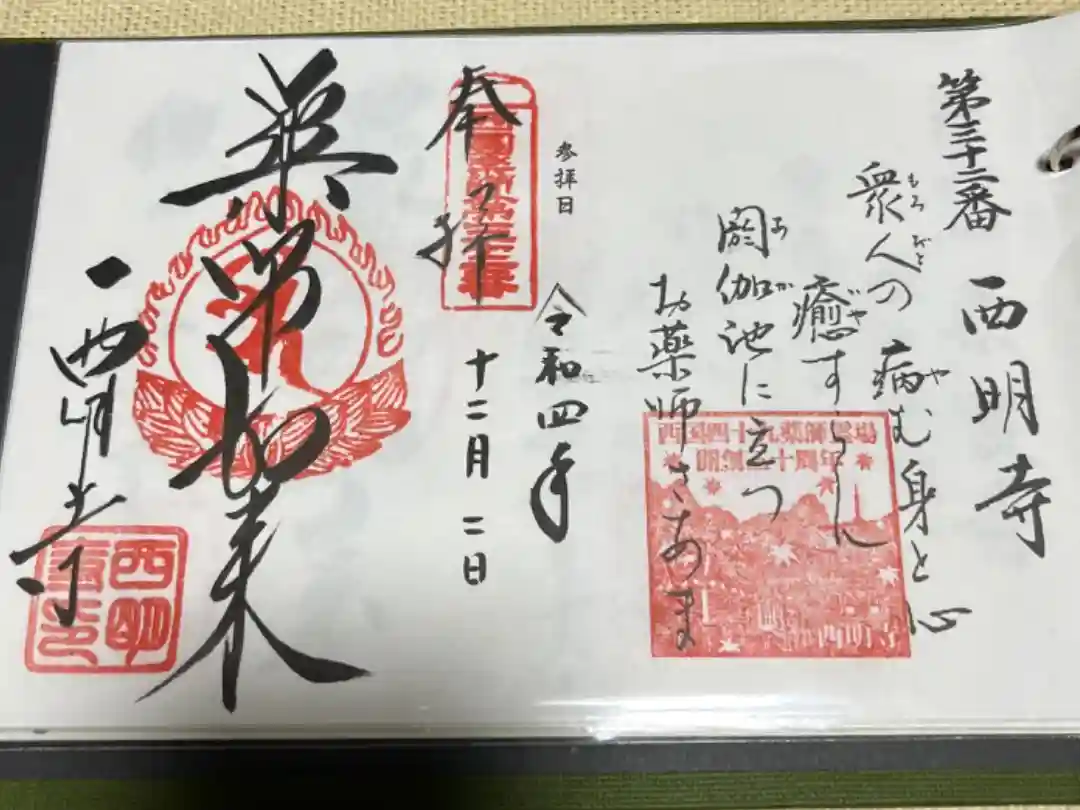 第三十二番 西明寺
衆人の 病む身と心
もろびと や
癒すらん
いや
閼伽池に立つ
あか
お薬師さあま
西国四十九薬師霊場
開創三十周年
西明寺
参拝日
令和四年
十二月 二日
奉拝
西國薬師第三十二番
薬師如来
西明寺
西明寺印